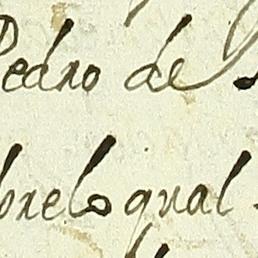 Pedro de
bre lo qual